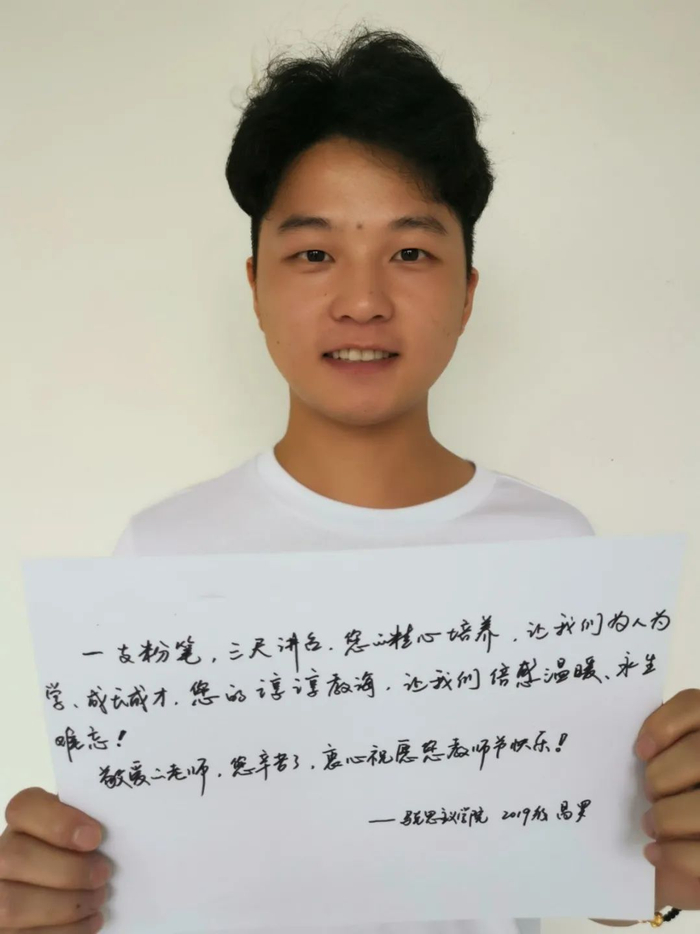 一支粉笔,三尺讲台.您的精心培养,让我们为人为
学、成长成才.您的谆谆教诲,让我们倍感温暖、永生
难忘!
敬爱的老师,您辛苦了,衷心祝愿您教师节快乐!
——学院 2019级